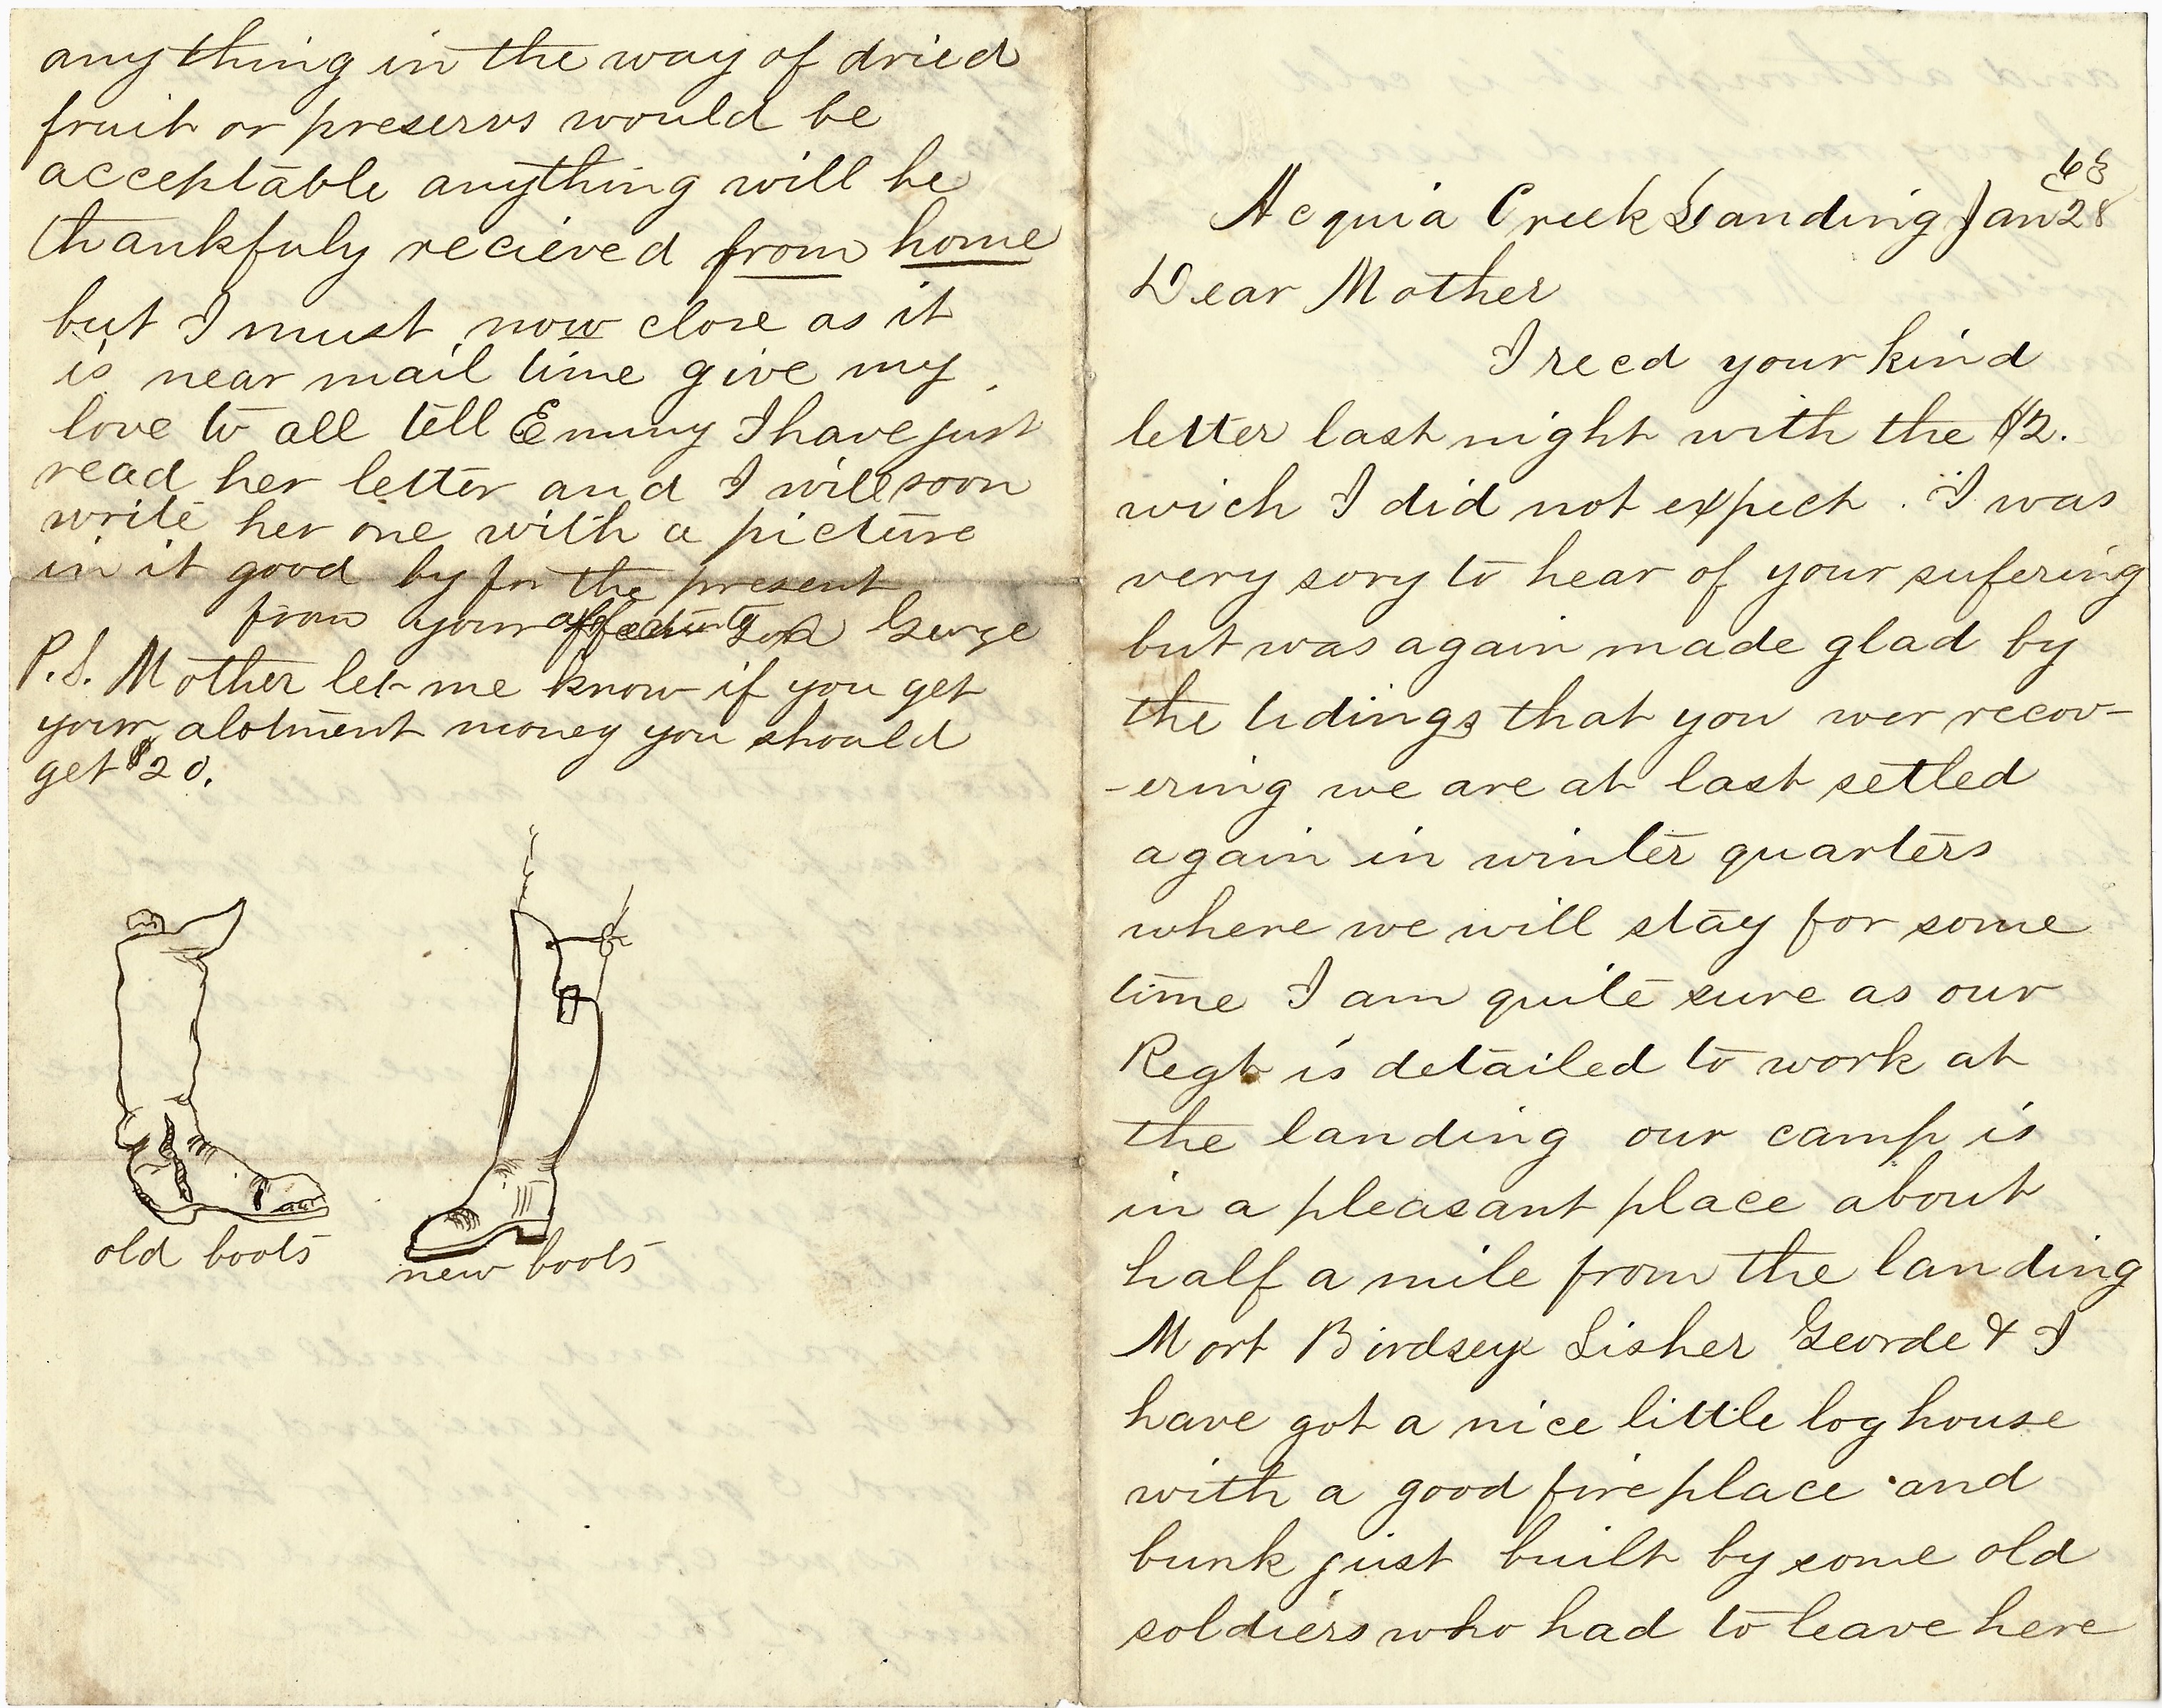 63
Acquia Creek Landing Jan 28
Dear Mother
I recd your kind
letter last night with the $2.
wich I did not expect. I was
very sory to hear of your sufering
but was again made glad by
the tidings that you wer recov-
-ering we are at last setled
again in winter quarters
where we will stay for some
time I am quite sure as our
Regt is detailed to work at
the landing our camp is
in a pleasant place about
half a mile from the landing
Mort Birdseye Lisher Georde & I
have got a nice little log house
with a good fireplace and
bunk just built by some old
soldiers who had to leave here
anything in the way of dried
fruit or preservs would be
acceptable anything will be
thankfuly recieved from home
but I must now close as it
is near mail time give my
love to all tell Emmy I have just
read her letter and I will soon
write her one with a picture
in it good by for the present
from your Son George
P.S. Mother let me know if you get
your alotment money you should
get $20.
old boots
new boots